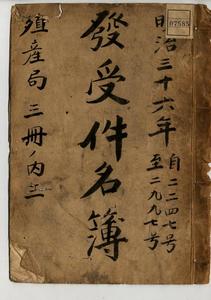 07585
明治三十六年
自二二四七号
至二九九七号
發受件名簿
殖産局 三冊ノ内二